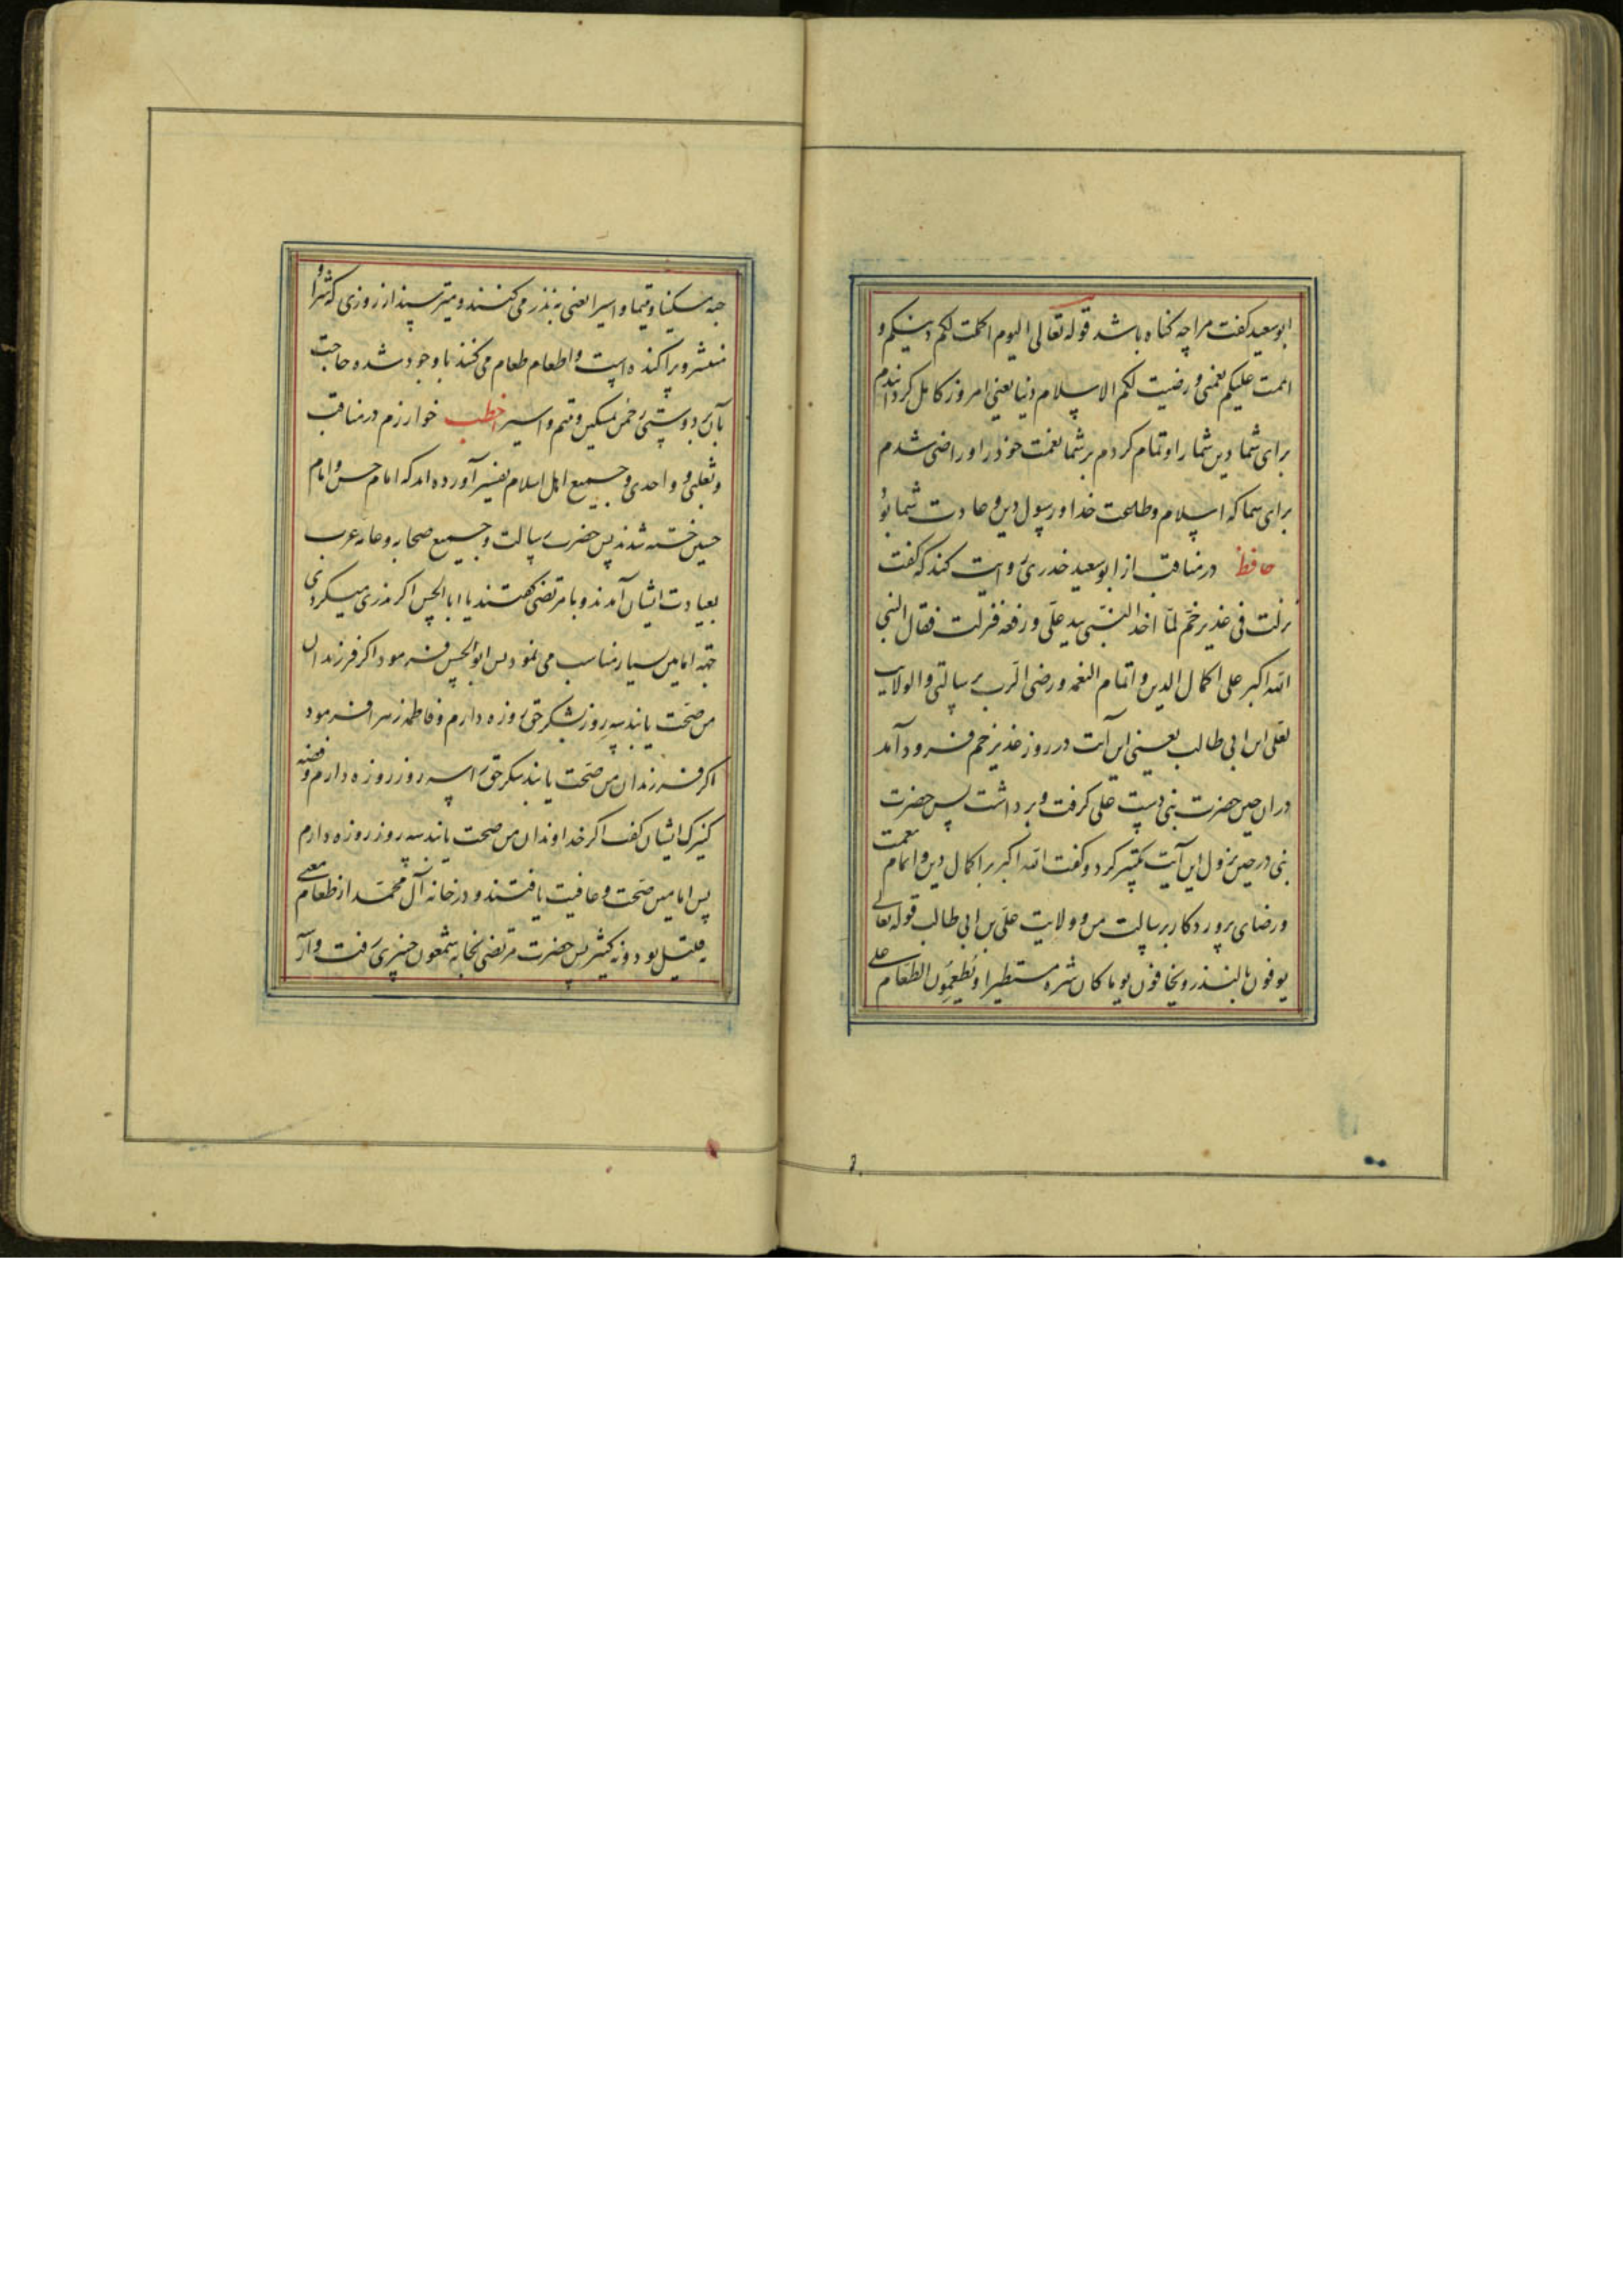 ابوسعید کفت مرا چه کناه باشد قوله تعالی الیوم اکملت لکم دینکم و
اتممت علیکم نعمتی و رضیت لکم الاسلام دینا یعنی امروز کامل کردانیدم
برای شما دین شما را و تمام کردم بر شما نعمت خود را و راضی شدم
برای شما که اسلام و طاعت خدا و رسول دین و عادت شما بود
حافظ در مناقب از ابوسعید خدری روایت کند که کفت
نزلت فی غدیر خم لما اخذ النبی بید علی و رفعه فنزلت فقال النبی
الله اکبر علی اکمال الدین و اتمام النعمه و رضی الرب برسالتی والولایت
لعلی ابن ابی طالب یعنی این آیت در روز غدیر خم فرود آمد
در آن حین حضرت نبی دست علی کرفت و برداشت پس حضرت
نبی در حین نزول این آیت تکبیر کرد و کفت الله اکبر بر اکمال دین و اتمام نعمت
و رضای پروردکار برسالت من و ولایت علی بن ابی طالب قوله تعالی
یوفون بالنذر و یخافون یوما کان شره مستطیرا و یطعمون الطعام علی
حبه مسکینا و یتیما و اسیرا یعنی به نذر می کنند و میترسند از روزی که شر او
منتشر و پراکنده است و اطعام طعام می کنند باوجود شده حاجت
بآن بر دوستی مسکین و یتیم و اسیر اخطب خوارزم در مناقب
و ثعلبی و واحدی و جمیع اهل اسلام تفسیر آورده اند که امام حسن و امام
حسین خسته شدند پس حضرت رسالت و جمیع صحابه و عامه عرب
بعیادت ایشان آمدند و با مرتضی کفتند یا ابا الحسن اکر نذری میکردی
جهة امامین بسیار مناسب می نمود پس ابوالحسن فرمود اکر فرزندان
من صحت یابند سه روز بشکر حق روزه دارم و فاطمه زهرا فرمود
اکر فرزندان من صحت یابند بشکر حق را سه روز روزه دارم و فضه
کنیزک ایشان کفت اکر خداوندان من صحت یابند سه روز روزه دارم
پس امامین صحت و عافیت یافتند و در خانه آل محمد از طعام نه
قلیل بود و نه کثیر پس حضرت مرتضی بخانه شمعون خیبری رفت و از